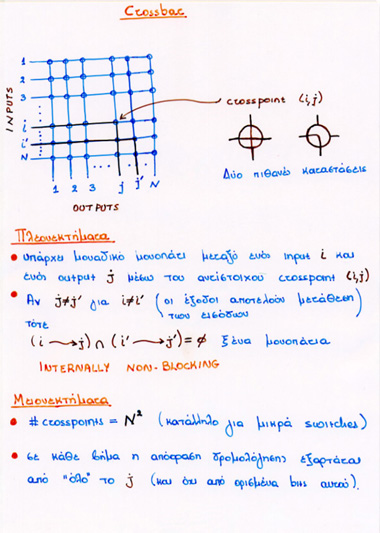 Crossbar
1
2
3
i
i'
N
INPUTS
1 2 3 j j' N
OUTPUTS
crosspoint (i,j)
Δύο πιθανές καταστάσεις
Πλεονεκτήματα
• υπάρχει μοναδικό μονοπάτι μεταξύ ενός input i και
ενός output j μέσω του αντίστοιχου crosspoint (i,j)
• Αν j≠j' για i≠i' (οι έξοδοι αποτελούν μετάθεση
των εισόδων
τότε
(i → j) ∩ (i' → j') = ∅ ξένα μονοπάτια
INTERNALLY NON-BLOCKING
Μειονεκτήματα
• # crosspoints = N² (κατάλληλο για μικρά switches)
• σε κάθε βήμα η απόφαση δρομολόγησης εξαρτάται
από "όλο" το j (και όχι από ορισμένα bits αυτού).